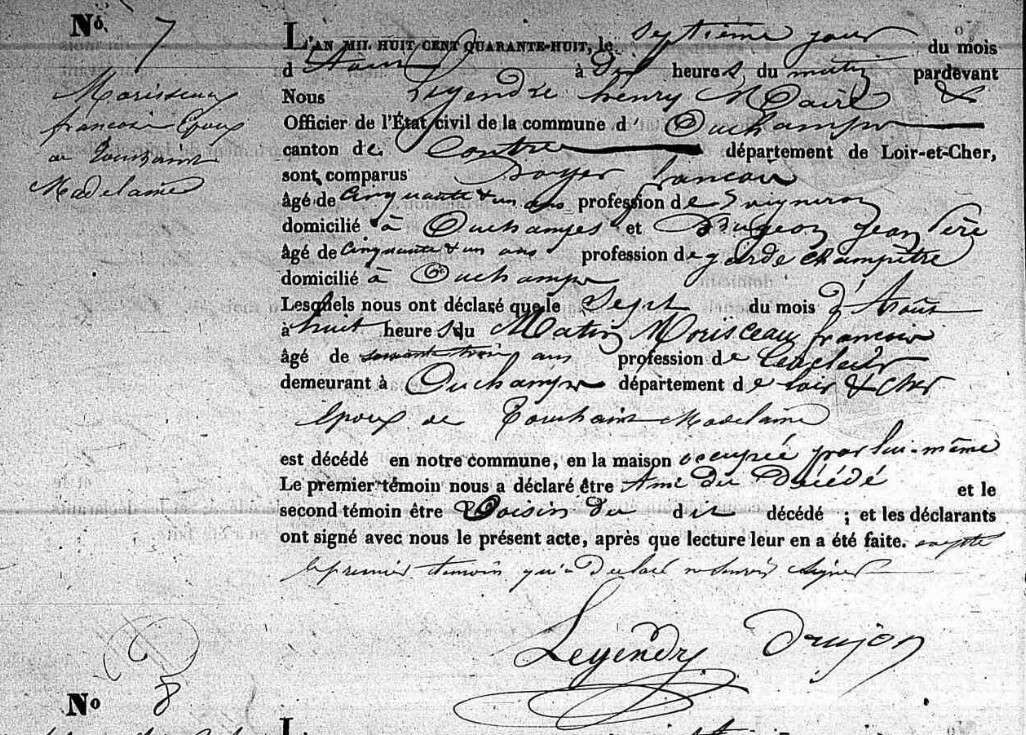 No. 7
Morisseau
francois Epoux
de Touchain
Madelaine
L'AN MIL HUIT CENT QUARANTE-HUIT, le septième jour du mois
d'Aout à Dix heures du matin pardevant
Nous Legendre henry Maire &
Officier de l'État civil de la commune d' Ouchamps
canton de Contre département de Loir-et-Cher,
sont comparus Boyer francois
âgé de Cinquante & un ans profession de Vigneron
domicilié à Ouchamps et Drugeon jean Père
âgé de Cinquante & un ans profession de garde champêtre
domicilié à Ouchamps
Lesquels nous ont déclaré que le Sept du mois d'Août
à huit heures du Matin Morisceau francois
âgé de soixante trois ans profession de
demeurant à Ouchamps département de loir & Cher
Epoux de Touchain Madelaine
est décédé en notre commune, en la maison occupée par lui-même
Le premier témoin nous a déclaré être Ami du Décédé et le
second témoin être Voisin du dit décédé ; et les déclarants
ont signé avec nous le présent acte, après que lecture leur en a été faite. excepté
le premier temoin qui a Declaré ne Savoir signer
Legendre Drujon
No 8